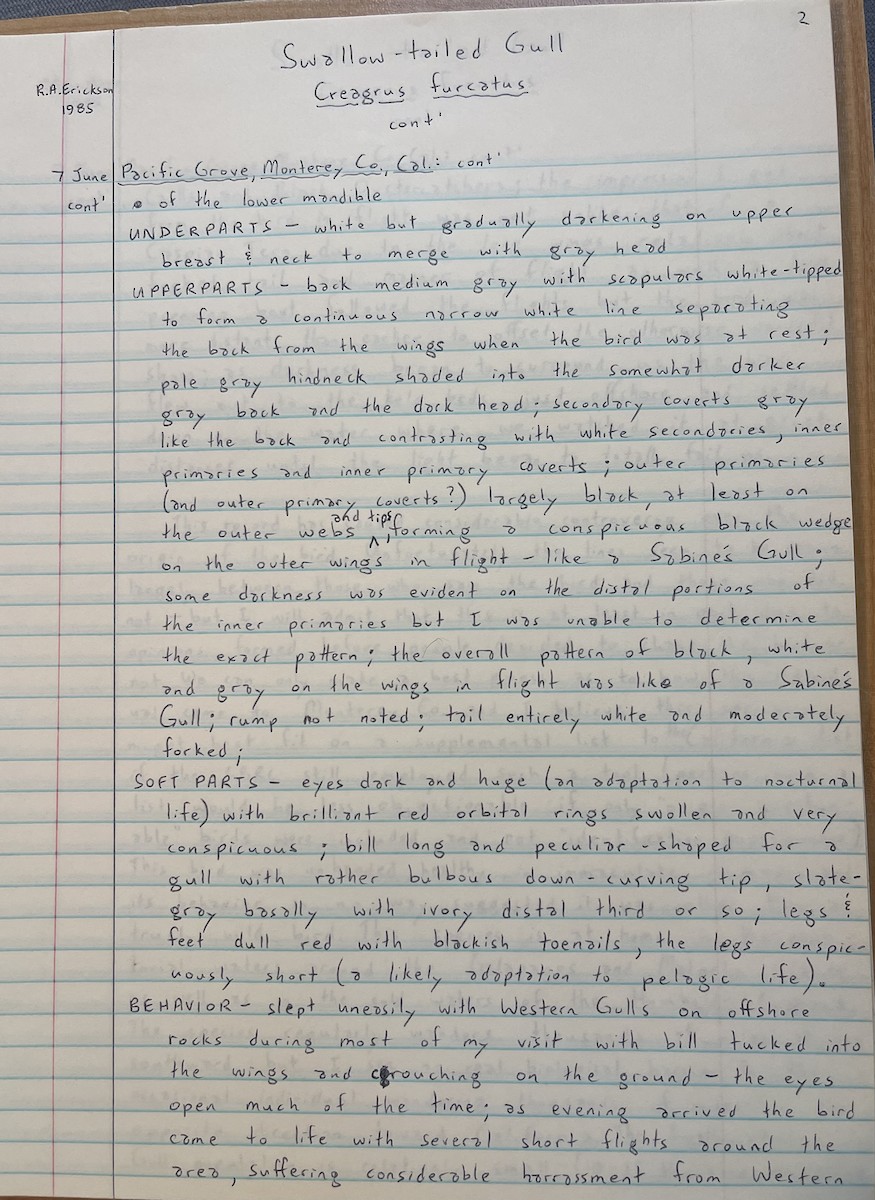 2
Swallow-tailed Gull
R.A.Erickson
1985
Creagrus furcatus
cont'
7 June Pacific Grove, Monterey Co., Cal.: cont'
cont' of the lower mandible
UNDERPARTS – white but gradually darkening on upper
breast & neck to merge with gray head
UPPERPARTS – back medium gray with scapulars white-tipped
to form a continuous narrow white line separating
the back from the wings when the bird was at rest;
pale gray hindneck shaded into the somewhat darker
gray back and the dark head; secondary coverts gray
like the back and contrasting with white secondaries, inner
primaries and inner primary coverts; outer primaries
(and outer primary coverts?) largely black, at least on
the outer webs and tips, forming a conspicuous black wedge
on the outer wings in flight – like a Sabine's Gull;
some darkness was evident on the distal portions of
the inner primaries but I was unable to determine
the exact pattern; the overall pattern of black, white
and gray on the wings in flight was like of a Sabine's
Gull; rump not noted; tail entirely white and moderately
forked;
SOFT PARTS – eyes dark and huge (an adaptation to nocturnal
life) with brilliant red orbital rings swollen and very
conspicuous; bill long and peculiar-shaped for a
gull with rather bulbous down-curving tip, slate-
gray basally with ivory distal third or so; legs &
feet dull red with blackish toenails, the legs conspic-
uously short (a likely adaptation to pelagic life).
BEHAVIOR – slept uneasily with Western Gulls on offshore
rocks during most of my visit with bill tucked into
the wings and crouching on the ground – the eyes
open much of the time; as evening arrived the bird
came to life with several short flights around the
area, suffering considerable harrassment from Western